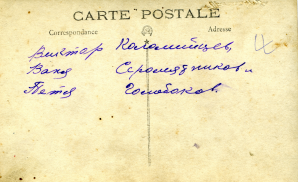 CARTE POSTALE
Correspondance Adresse
Виктор Коломийцев,
Ваня Серомядников и
Петя Голобоков.